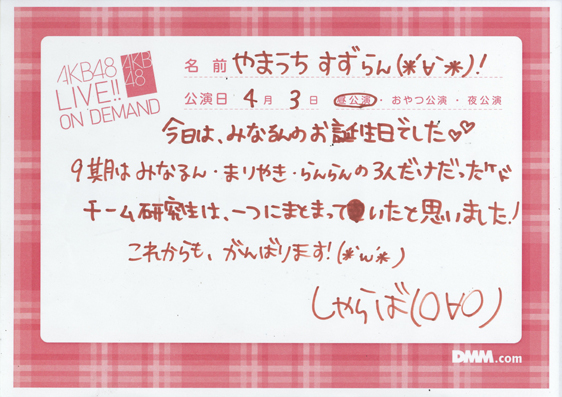 AKB48
LIVE!!
ON DEMAND
AKB
48
名前 やまうち すずらん(*´∀`*)!
公演日 4月 3日 昼公演・おやつ公演・夜公演
今日は、みなるんのお誕生日でした♡♡
9期はみなるん・まりやぎ・らんらんの3人だけだったケド
チーム研究生は、一つにまとまっていたと思いました!
これからも、がんばります!(*´ω`*)
しゃらば(〇∀〇)
DMM.com